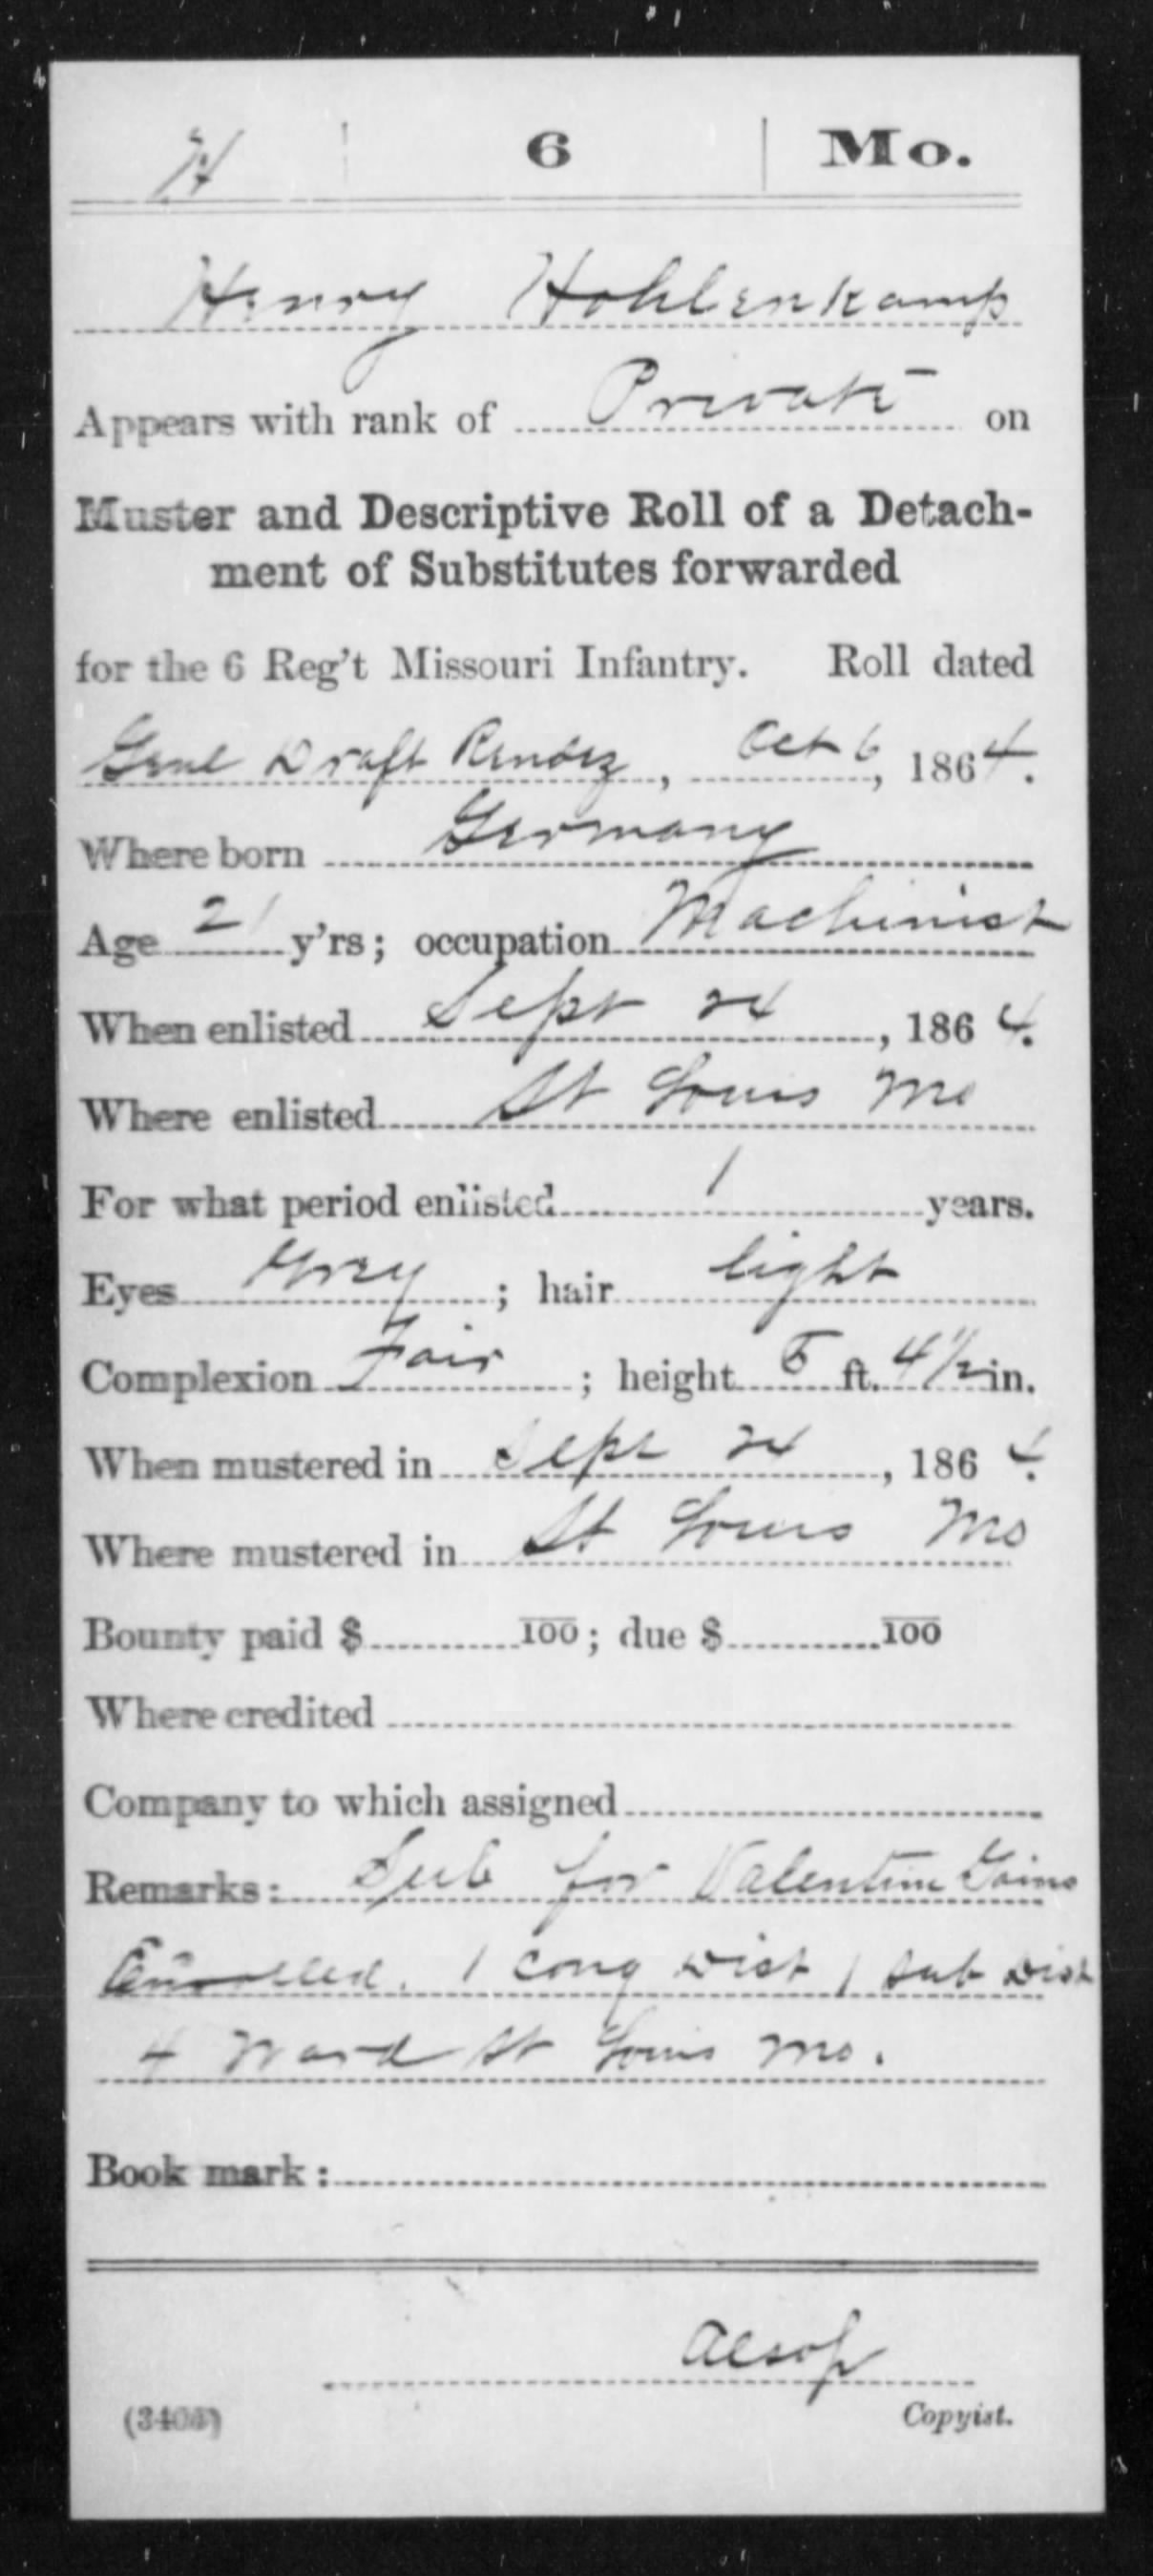 H 6 Mo.
Henry Hohlenkamp
Appears with rank of Private on
Muster and Descriptive Roll of a Detach-
ment of Substitutes forwarded
for the 6 Reg't Missouri Infantry. Roll dated
Genl Draft Rendez, Oct 6, 1864.
Where born Germany
Age 21 y'rs; occupation Machinist
When enlisted Sept 24, 1864.
Where enlisted St Louis Mo
For what period enlisted 1 years.
Eyes Grey; hair light
Complexion Fair; height 5 ft. 4 1/2 in.
When mustered in Sept 24, 1864.
Where mustered in St Louis Mo
Bounty paid $ 100; due $ 100
Where credited
Company to which assigned
Remarks: Sub for Valentine
Enrolled. 1 Cong Dist 1 Sub Dist
4 Ward St Louis Mo.
Book mark:
Aesop
Copyist.